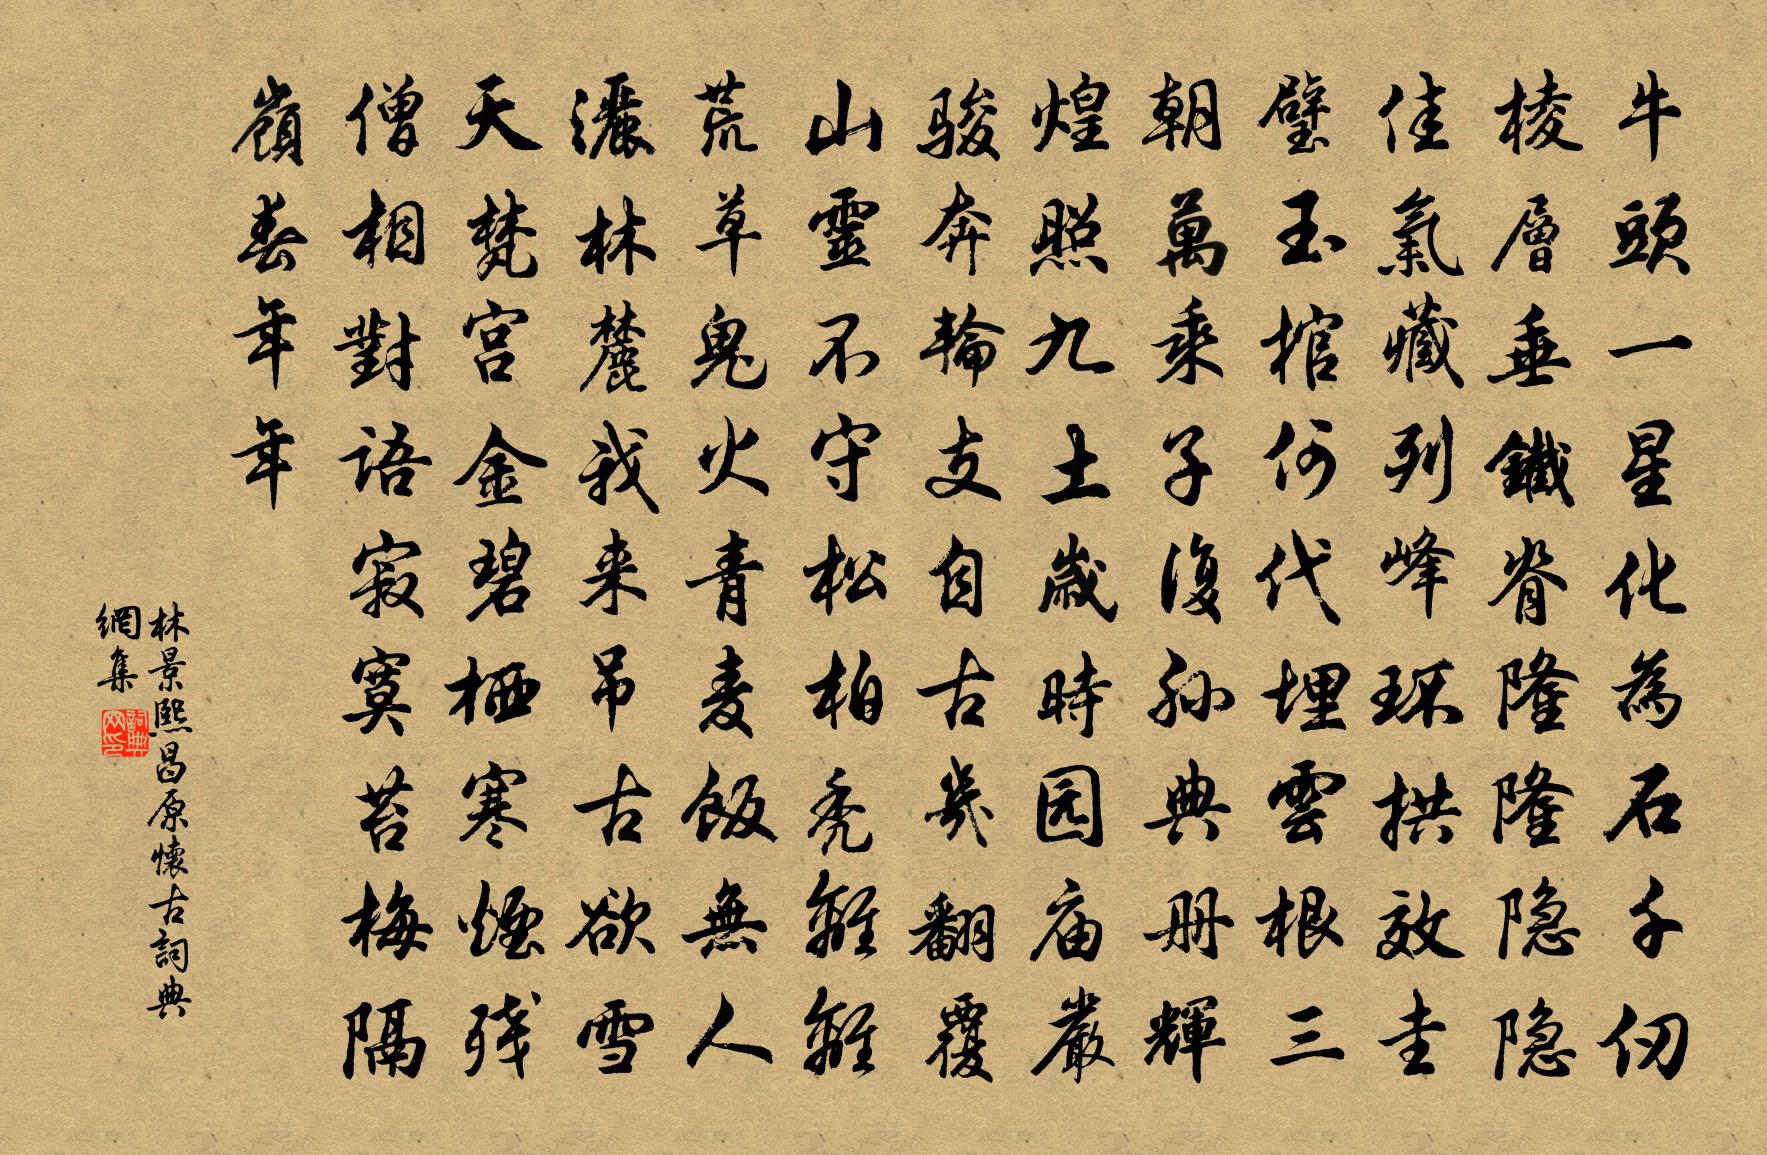 牛頭一星化為石千仞
棱層垂鐵脊隆隆隐隐
佳氣藏列峰环拱效圭
璧玉棺何代埋雲根三
朝萬乘子復孙典册輝
煌照九土歲時园庙嚴
骏奔輪支自古几翻覆
山靈不守松柏秃離離
荒草鬼火青麦飯無人
灑林麓我来吊古欲雪
天梵宫金碧栖寒煙残
僧相對語寂寞苔梅隔
嶺春年年
林景熙昌原懷古詞典
網集
詞典
网印